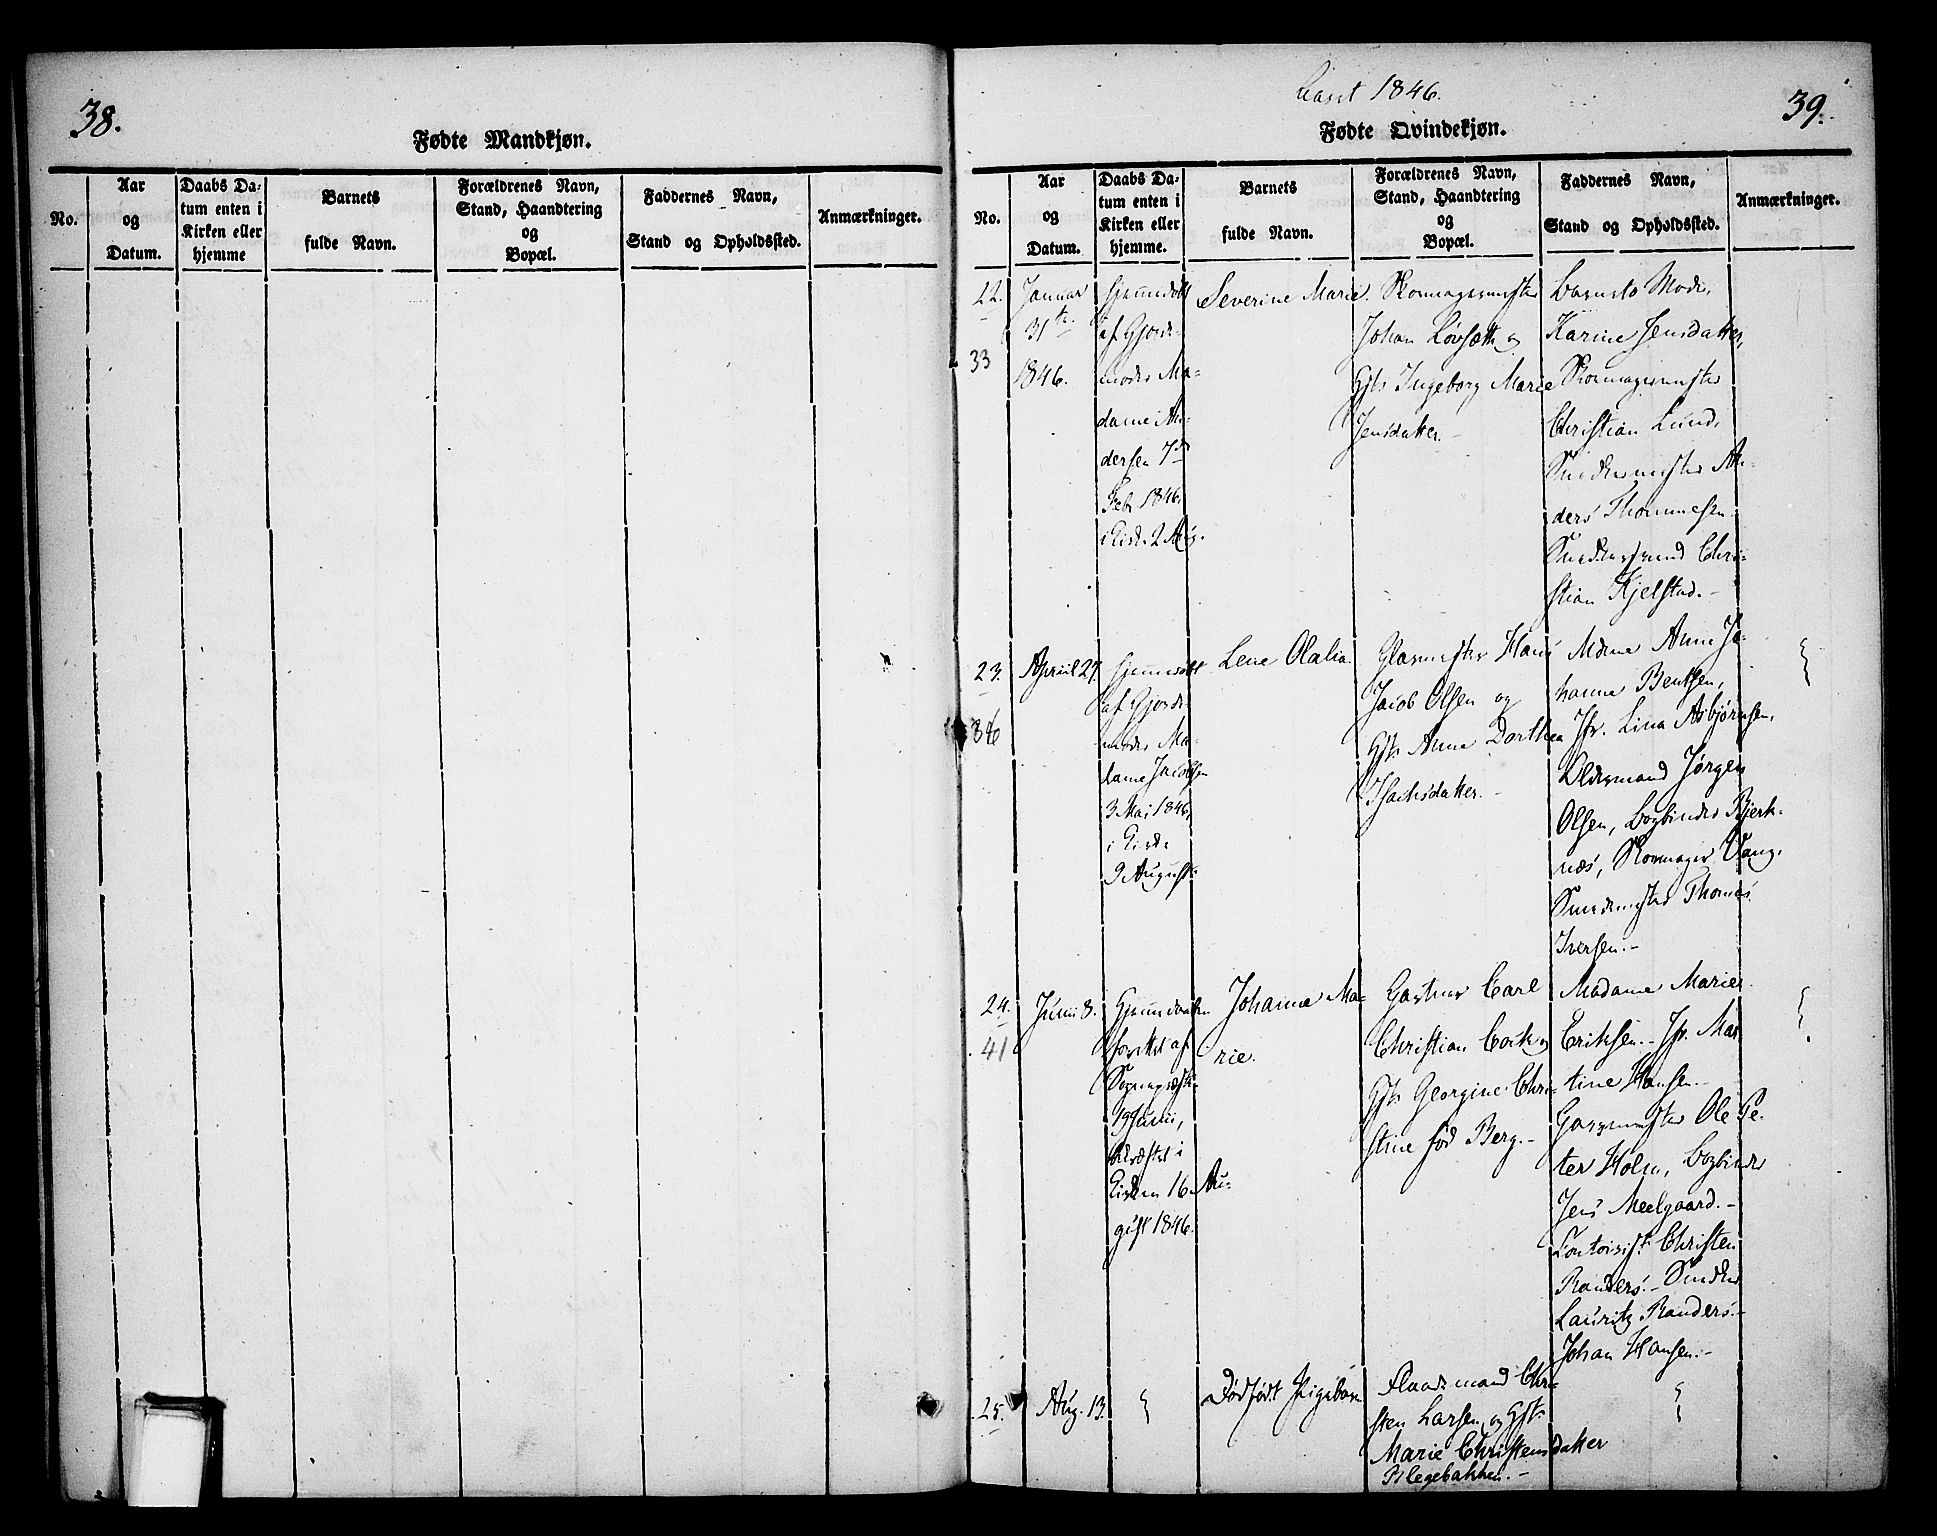 38.
Fødte Mandkjøn.
No.
Aar
og
Datum.
Daabs Da-
tum enten i
Kirken eller
hjemme
Barnets
fulde Navn.
Forældrenes Navn,
Stand, Haandtering
og
Bopæl.
Faddernes Navn,
Stand og Opholdssted.
Anmærkninger.
1846.
39.
Fødte Qvindekjøn.
No.
Aar
og
Datum.
Daabs Da-
tum enten i
Kirken eller
hjemme.
Barnets
fulde Navn.
Forældrenes Navn,
Stand, Haandtering
og
Bopæl.
Faddernes Navn,
Stand og Opholdssted.
Anmærkninger.
22.
33
Januar
31te
1846.
Hjemmedøbt
af Gjorde-
moder Ma-
dame An-
dersen 7d
Feb 1846.
i Kirk. 2 Aug.
Severine Marie.
Skomagermester
Johan Løvsæth og
Hst. Ingeborg Marie
Jensdatter.-
Barnets Moder,
Karine Jensdatter,
Skomagermester
Christian Lund,
Snedkermester An-
ders Thommesen.
Snedkersvend Chri-
stian Kjelstad.-
23.
36
Apriil 27.
Hjemmedøbt
af Gjorde-
moder Ma-
dame Jacobsen
3 Mai 1846,
i Kirke
9 August.
Lene Olalia.
Glasmester Hans
Jacob Olsen og
Hst. Anne Dorthea
Isachsdatter.-
Mdme Anne Jo-
hanne Bentsen,
Jfr. Lina Asbjørnsen,
Oldermand Jørgen
Olsen, Bogbinder Bjerk-
næs, Skomager Vang,
Smedemester Thomas
Iversen.-
24.
41
Junii 8.
Hjemmedaaben
forrettet af
Sognepræsten
19 Junii,
bekræftet i
Kirken 16 Au-
gust 1846.
Johanna Ma-
rie.
Gartner Carl
Christian Cock og
Hst. Georgine Chri-
stine fød Berg.-
Madame Marie
Eriksen.- Jfr. Mar-
tine Hansen.-
Garvermester Ole Pe-
ter Holm, Bogbinder
Jens Meelgaard.-
Contorist Christen
Randers.- Snedker
Lauritz Randers.-
Johan Hansen.-
25.
Aug. 13.
Dødfødt Pigebarn
Flaadsmand Chri-
sten Larsen og Hst.
Marie Christensdatter
Blegebakken.-